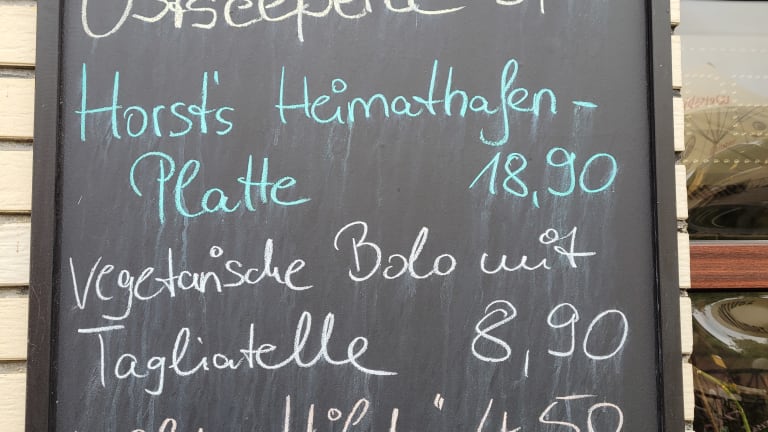 Ostseeperle
Horst's Heimathafen-
Platte 18,90
Vegetarische Bolo mit
Tagliatelle 8,90
4,50